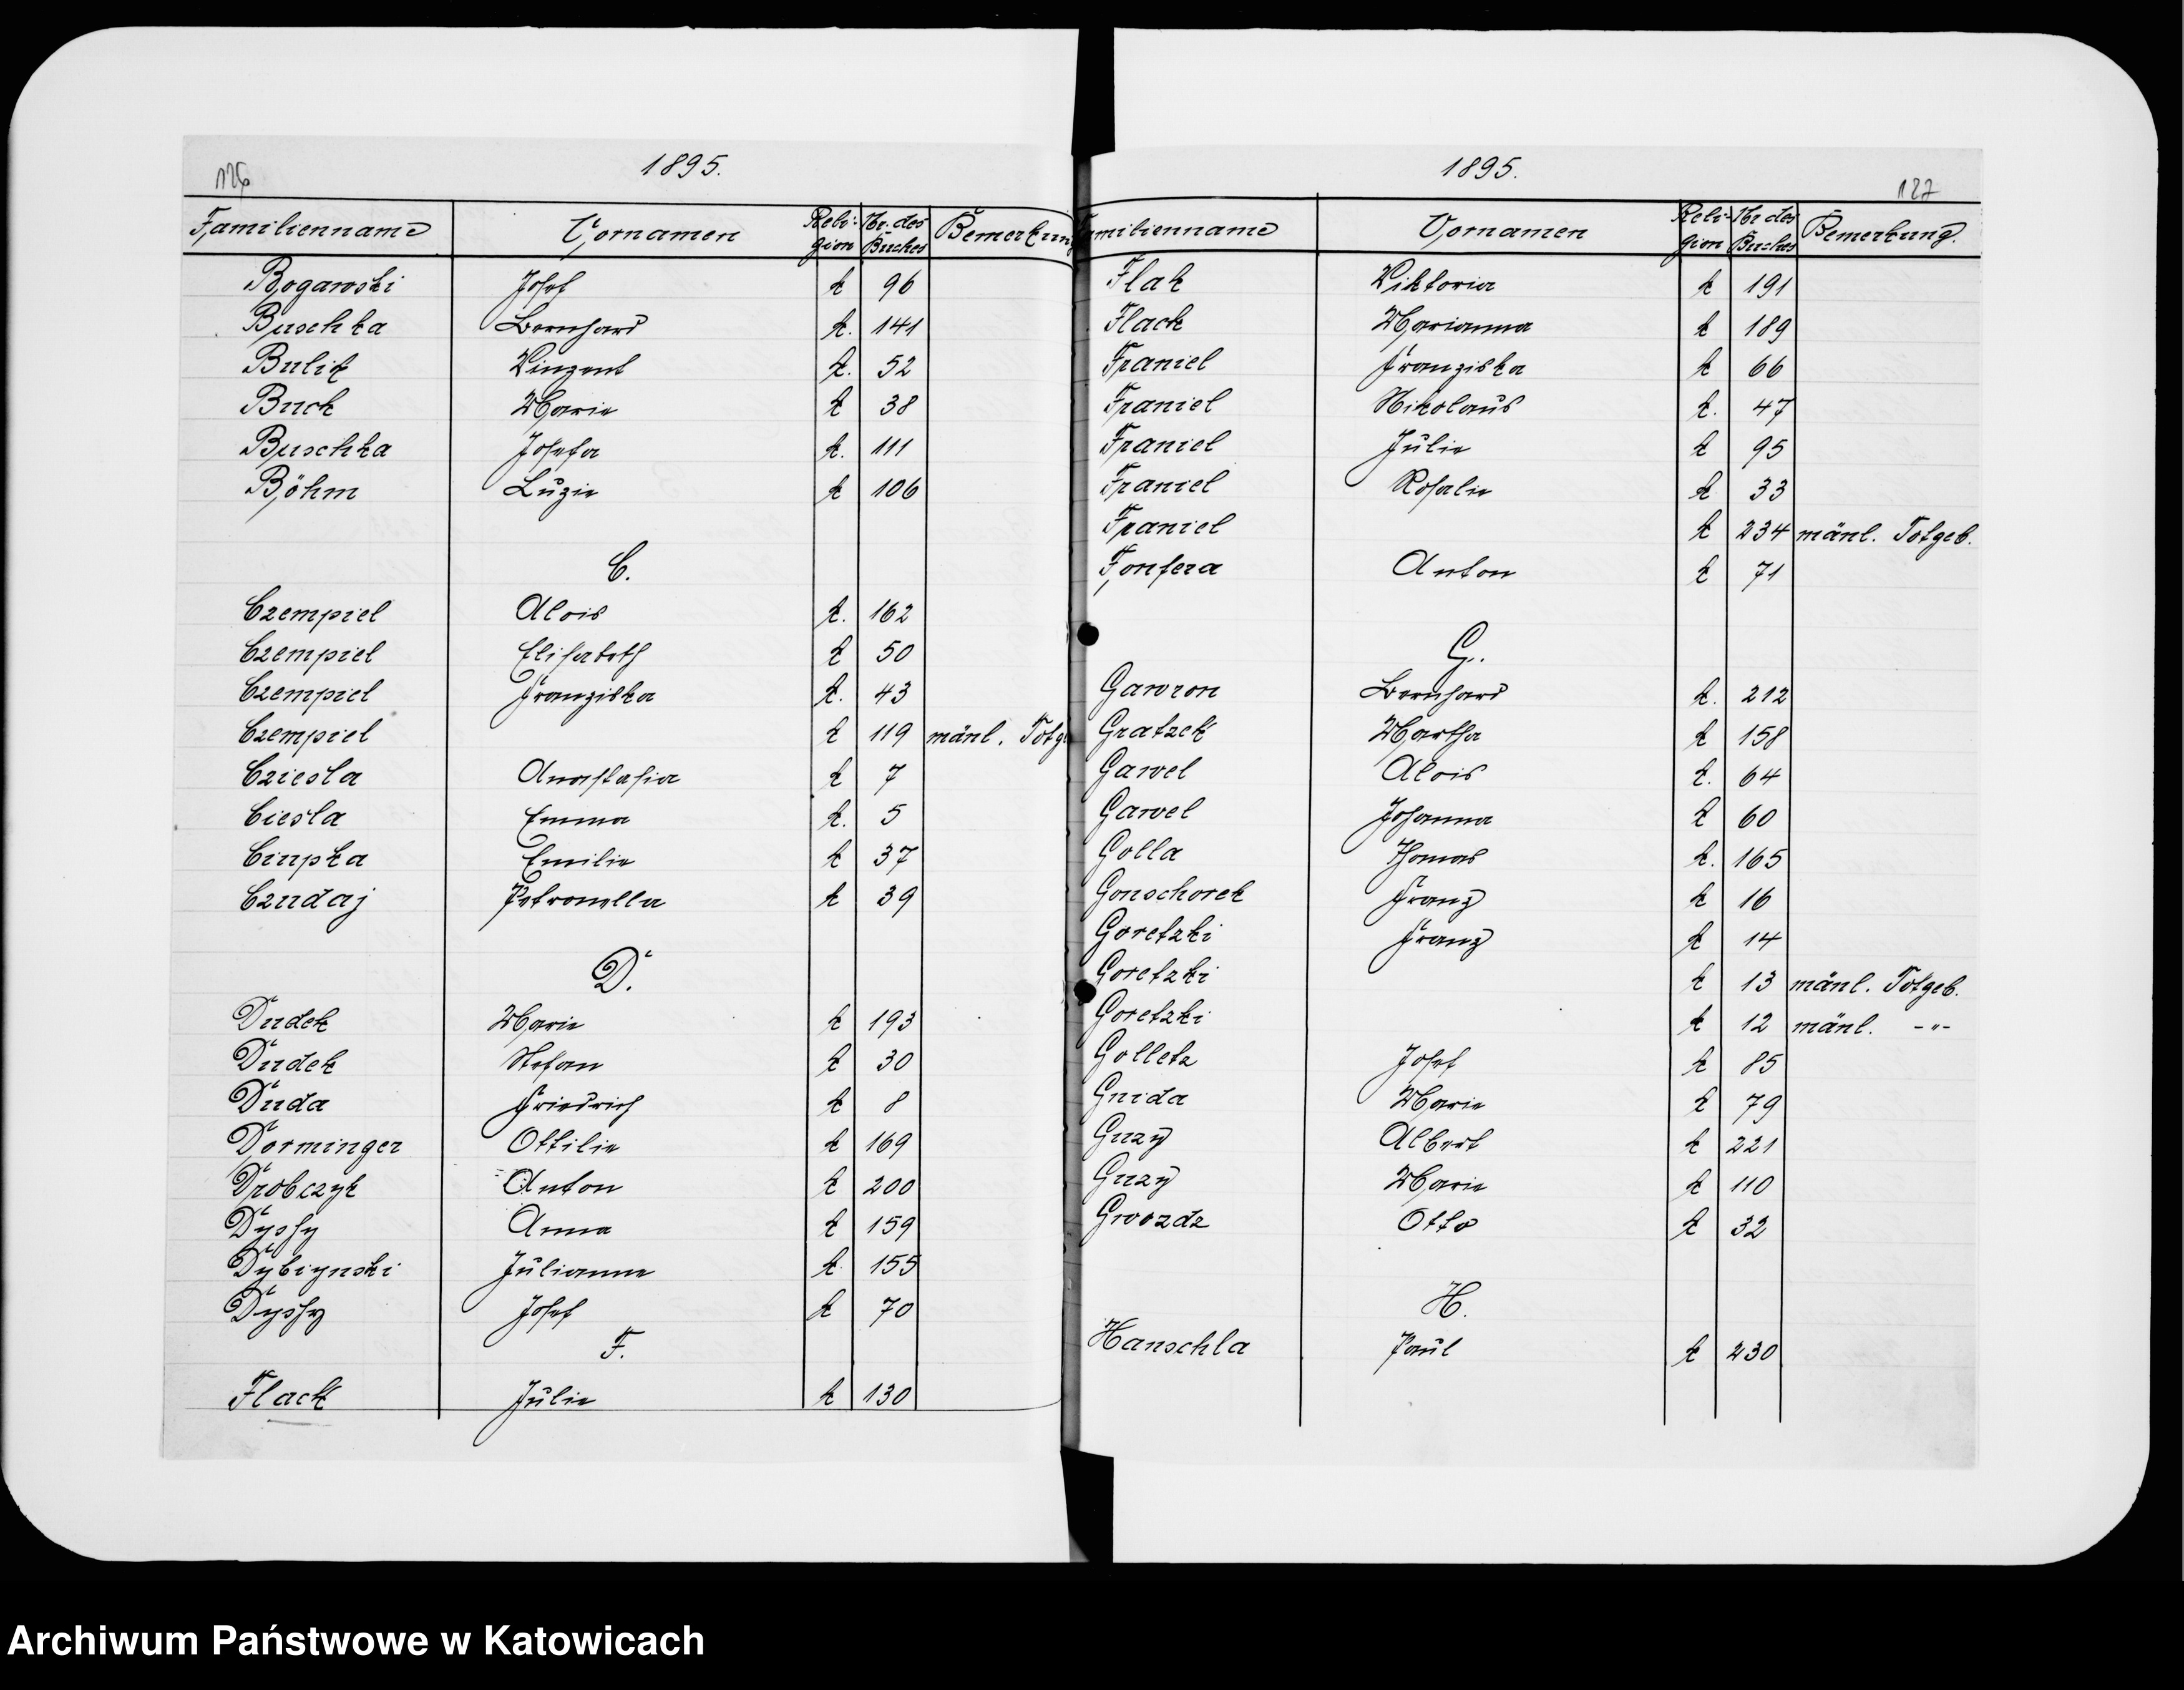 126
1895.
Familienname Vornamen Reli-gion Nr. des Buches Bemerkung
Bogarwski Josef k 96
Buschka Bernhard k. 141
Bulik Vinzent k. 52
Buck Marie k 38
Buschka Josefa k. 111
Böhm Luzie k 106
C.
Czempiel Alois k. 162
Czempiel Elisabeth k 50
Czempiel Franziska k. 43
Czempiel k 119 mänl. Totg
Cziesla Anastasia k 7
Ciesla Emma k. 5
Ciupka Emilie k 37
Czudaj Petronella k 39
D.
Dudek Marie k 193
Dudek Stefan k 30
Duda Friedrich k 8
Dorminger Ottilie k 169
Drobczyk Anton k 200
Dyssy Anna k 159
Dybiynski Julianne k. 155
Dyssy Josef k 70
F.
Flack Julie k 130
1895.
127
Familienname Vornamen Reli-gion Nr des Buches Bemerkung.
Flak Viktoria k 191
Flack Marianna k 189
Franiel Franziska k 66
Franiel Nikolaus k. 47
Franiel Julie k 95
Franiel Rosalie k 33
Franiel k 234 mänl. Totgeb.
Fonfera Anton k 71
G.
Gawron Bernhard k. 212
Gratzek Martha k 158
Gawel Alois k. 64
Gawel Johanna k 60
Golla Thomas k. 165
Gonschorek Franz k 16
Goretzki Franz k 14
Goretzki k 13 mänl. Totgeb.
Goretzki k 12 mänl. -"-
Golletz Josef k 85
Guida Marie k 79
Guzy Albert k 221
Guzy Marie k 110
Gwozdz Otto k 32
H.
Hanschla Paul k 230
Archiwum Państwowe w Katowicach